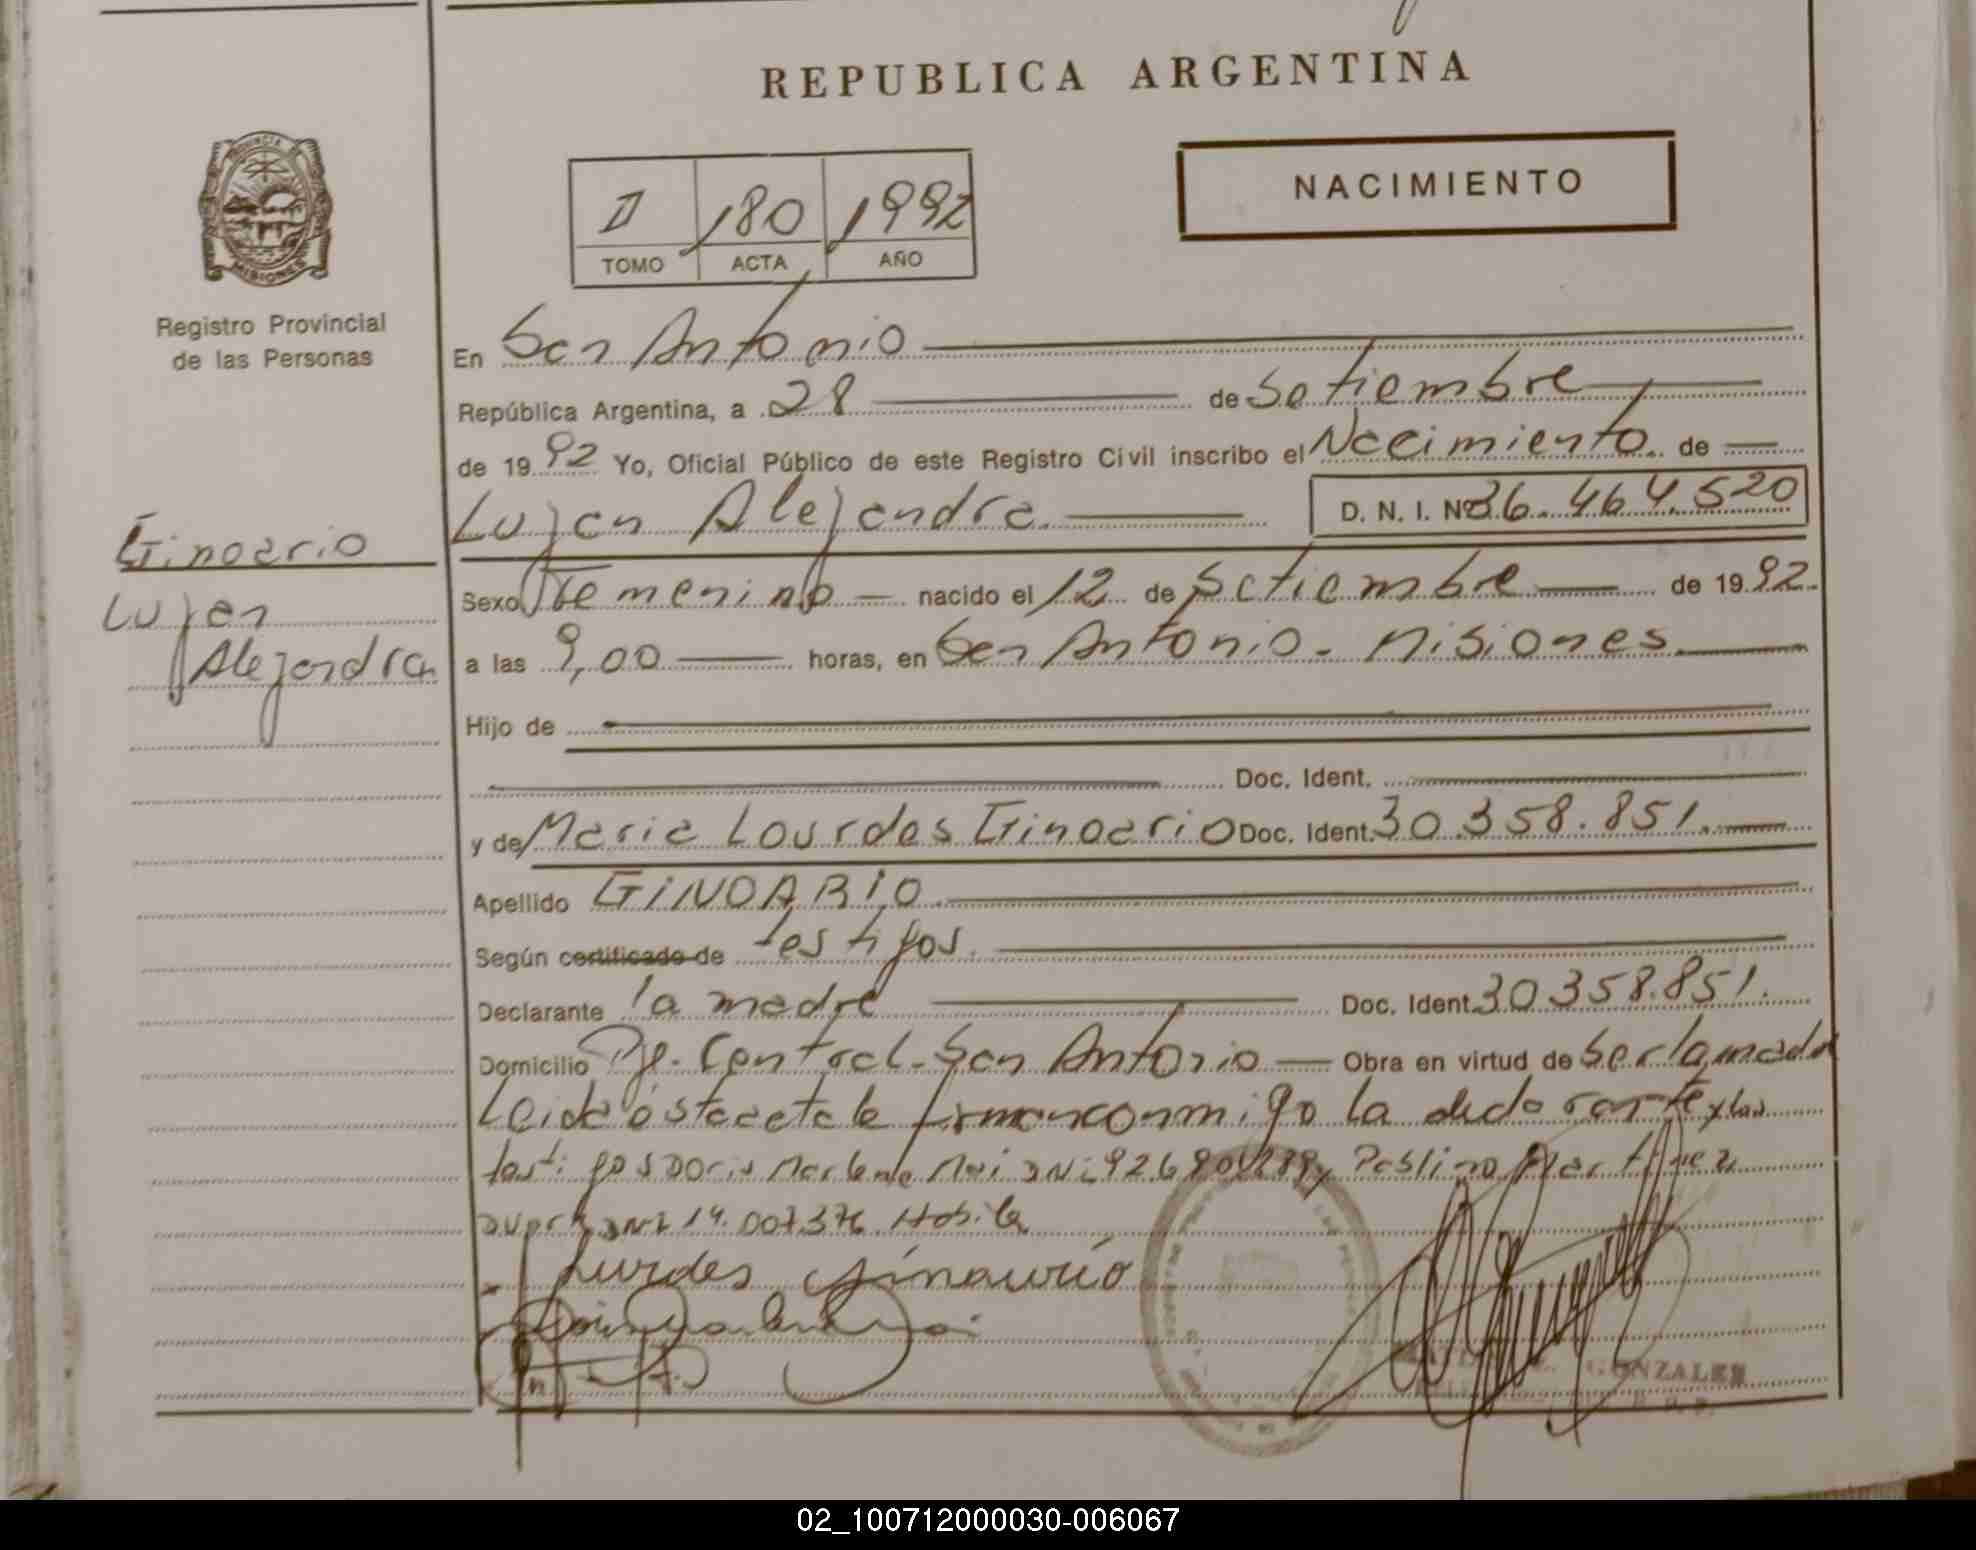 REPUBLICA ARGENTINA
NACIMIENTO
II 180 1992
TOMO ACTA AÑO
MISIONES
Registro Provincial
de las Personas
En San Antonio
República Argentina, a 28 de Setiembre
de 1992 Yo, Oficial Público de este Registro Civil inscribo el Nacimiento de
Lujan Alejandra D. N. I. Nº 36.464.520
Ginoario
Lujan
Alejandra
Sexo Femenino nacido el 12 de Setiembre de 1992.
a las 9,00 horas, en San Antonio - Misiones
Hijo de
Doc. Ident.
y de Maria Lourdes Ginoario Doc. Ident. 30.358.851.
Apellido GINOARIO
Según certificado de testigos.
Declarante la madre Doc. Ident. 30.358.851.
Domicilio Central - San Antonio Obra en virtud de Ser la madre
Leida esta acta la firman conmigo la declarante y los
testigos Doris Marlene y Martinez
DNI 14.007.376
Lurdes Ginaurio
GONZALEZ
02_100712000030-006067